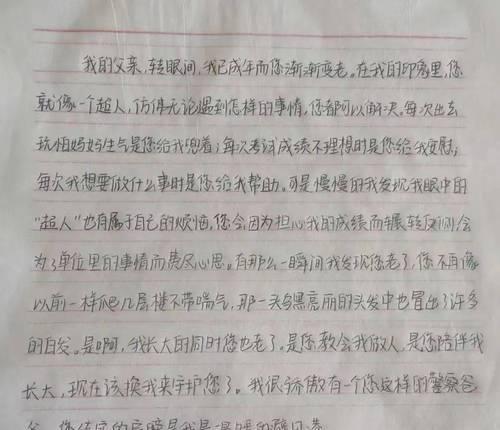 我的父亲,转眼间,我已成年而您渐渐变老。在我的印象里,您
就像一个超人,仿佛无论遇到怎样的事情,您都可以解决。每次出去
玩怕妈妈生气是您给我兜着;每次考试成绩不理想时是您给我安慰;
每次我想要做什么事时是您给我帮助。可是慢慢的我发现我眼中的
“超人”也有属于自己的烦恼,您会因为担心我的成绩而辗转反侧,会
为了单位里的事情而费尽心思。有那么一瞬间我发现您老了,您不再像
以前一样爬几层楼不带喘气,那一头乌黑亮丽的头发中也冒出了许多
的白发。是啊,我长大的同时您也老了。是您教会我做人,是您陪伴我
长大,现在该换我来守护您了。我很骄傲有一个您这样的警察爸